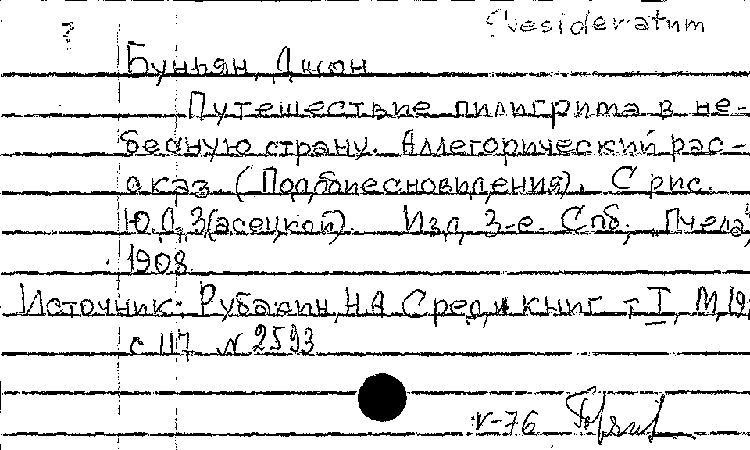 Desideratum
Буньян, Джон
Путешествие пилигрима в не-
бесную страну. Аллегорический рас-
сказ. (Подобие сновидения). С рис.
Ю.Д. З(асецкой). Изд. 3-е. Спб., "Пчела",
1908
Источник: Рубакин, Н.А. Среди книг т. I, М, 19
с 117 N 2593
V-76